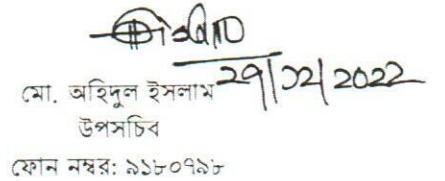 ২৭/১২/২০২২
মো. অহিদুল ইসলাম
উপসচিব
ফোন নম্বর: ৯১৮০৭৯৮